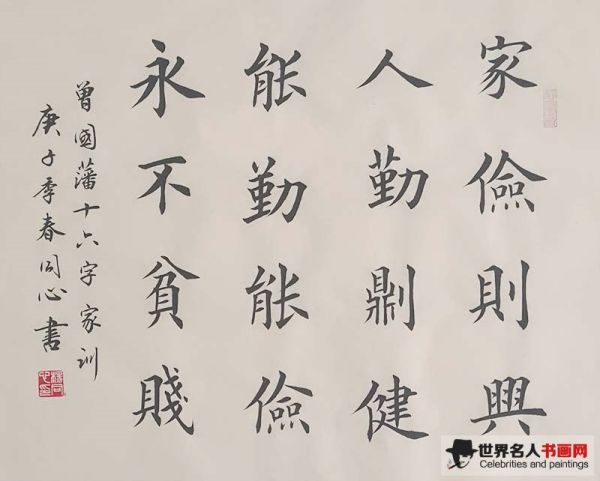 家儉則興
人勤𠟻健
能勤能儉
永不貧賤
曾國藩十六字家训
庚子季春同心書
世界名人书画网
Celebrities and paintings